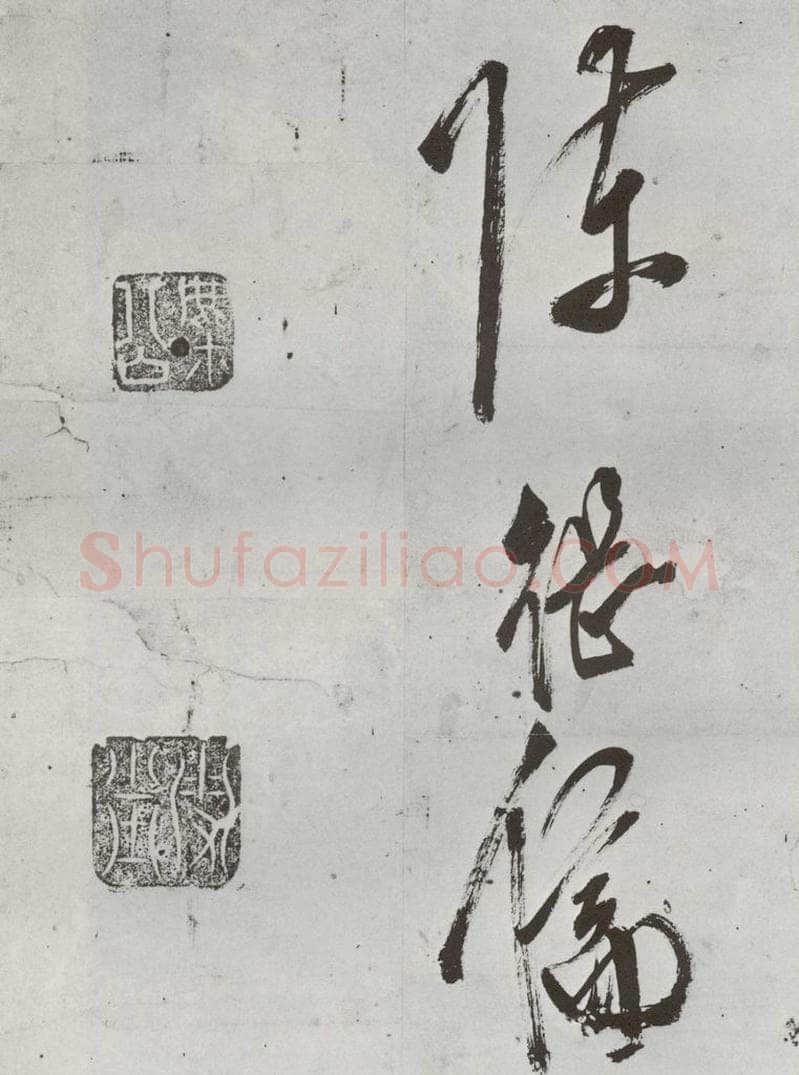 陳繼儒
麋公
Shufaziliao.COM